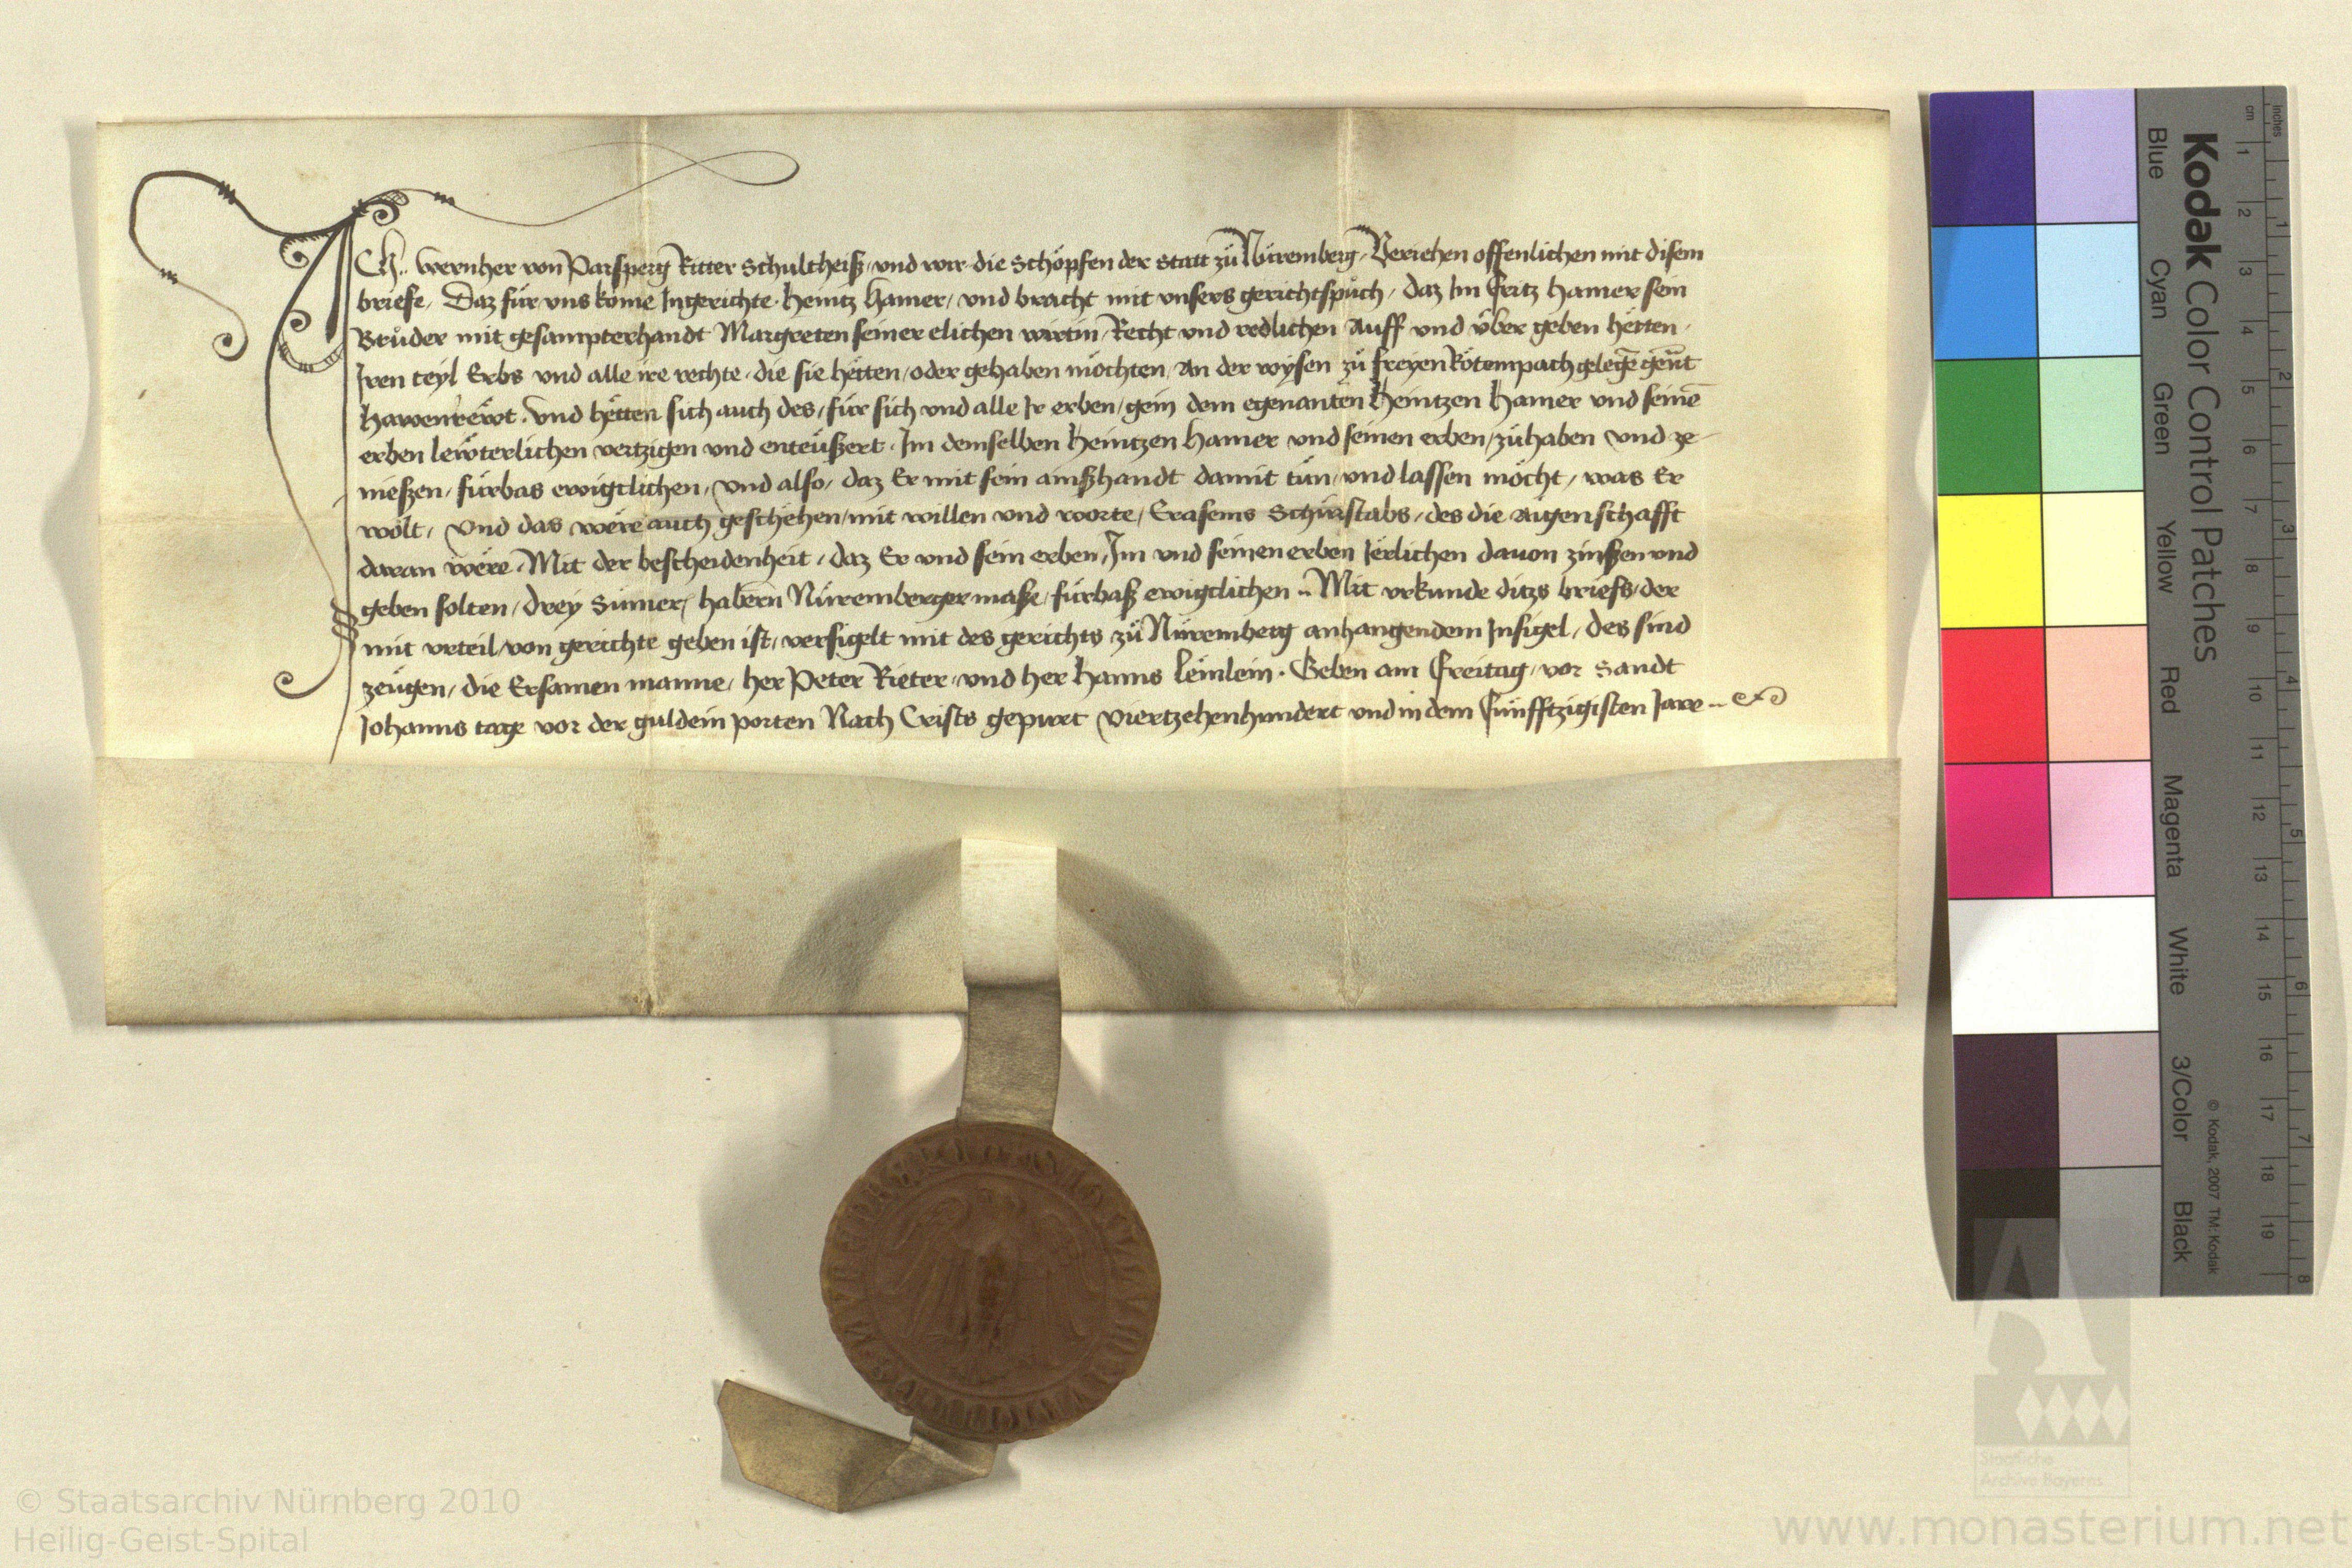 ICh.. Wernher von Parsperg Ritter Schultheiß, und wir die Schöpfen der Statt zů Nüremberg, Veriehen offenlichen mit disem
briefe, Daz für uns kome Ingerichte, Heintz Hamer, und bracht mit unsers gerichtspůch, daz Im Fritz Hamer sein
Brůder mit gesampterhandt Margreten seiner elichen wirtin, Recht und redlichen Auff und über geben hëtten,
Iren teyl Erbs und alle ire rechte, die sie hëtten, oder gehaben möchten, An der wysen zů freyen Rötempach gelegē genāt
Hawenrewt. Und hëtten sich auch des, für sich und alle Ir erben, gein dem egenanten Heintzen Hamer und seinē
erben lewterlichen vertzigen und enteüßert. Im demselben Heintzen Hamer und seinen erben, zůhaben und ze-
nießen, fürbas ewigclichen, und also, daz Er mit sein ainßhandt damit tůn, und lassen möcht, was Er
wolt, Und das wëre auch geschehen, mit willen und worte, Erasems Schürstabs, des die Aigenschafft
daran wëre, Mit der bescheidenheit, daz Er und sein erben, Im und seinen erben Jerlichen davon zinßen und
geben solten, drey Sümer, habern Nüremberger maße, fürbaß ewigclichen .. Mit urkunde ditzs briefs, der
mit urteil, von gerichte geben ist, versigelt mit des gerichts zů Nüremberg anhangendem Insigel, des sind
zeügen, die Ersamen manne, her Peter Rieter, und her Hanns Leinlein. Geben am Freitag, vor Sandt
Johanns tage vor der guldein porten Nach Crists gepurt Viertzehenhundert und in dem Fünfftzigisten Jare ..
Kodak Color Control Patches
Blue
Cyan
Green
Yellow
Red
Magenta
White
3/Color
Black
© Kodak, 2007 TM: Kodak
cm 1 2 3 4 5 6 7 8 9 10 11 12 13 14 15 16 17 18 19
Inches 1 2 3 4 5 6 7 8
Staatliche
Archive Bayerns
© Staatsarchiv Nürnberg 2010
Heilig-Geist-Spital
www.monasterium.net